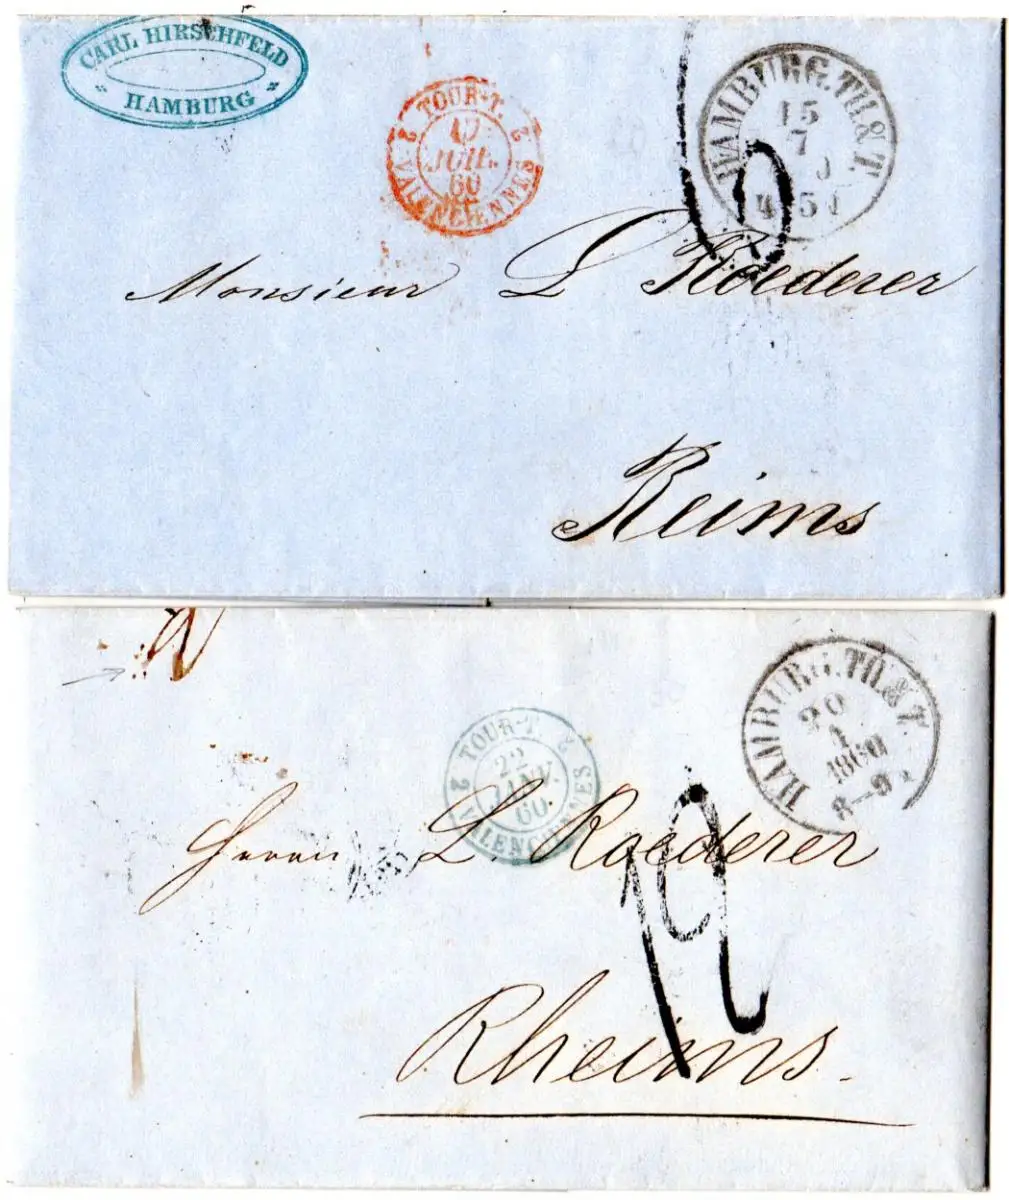 CARL HIRSCHFELD
HAMBURG
TOUR-T.
2 17 2
JUIL.
60
VALENCIENNES
HAMBURG. TH. & T.
15
7
4-5
Monsieur L Roederer
Reims
HAMBURG. TH. & T.
20
1
1860
8-9
TOUR-T.
2 22 2
JANV.
60.
VALENCIENNES
Herrn L. Roederer
Rheims.